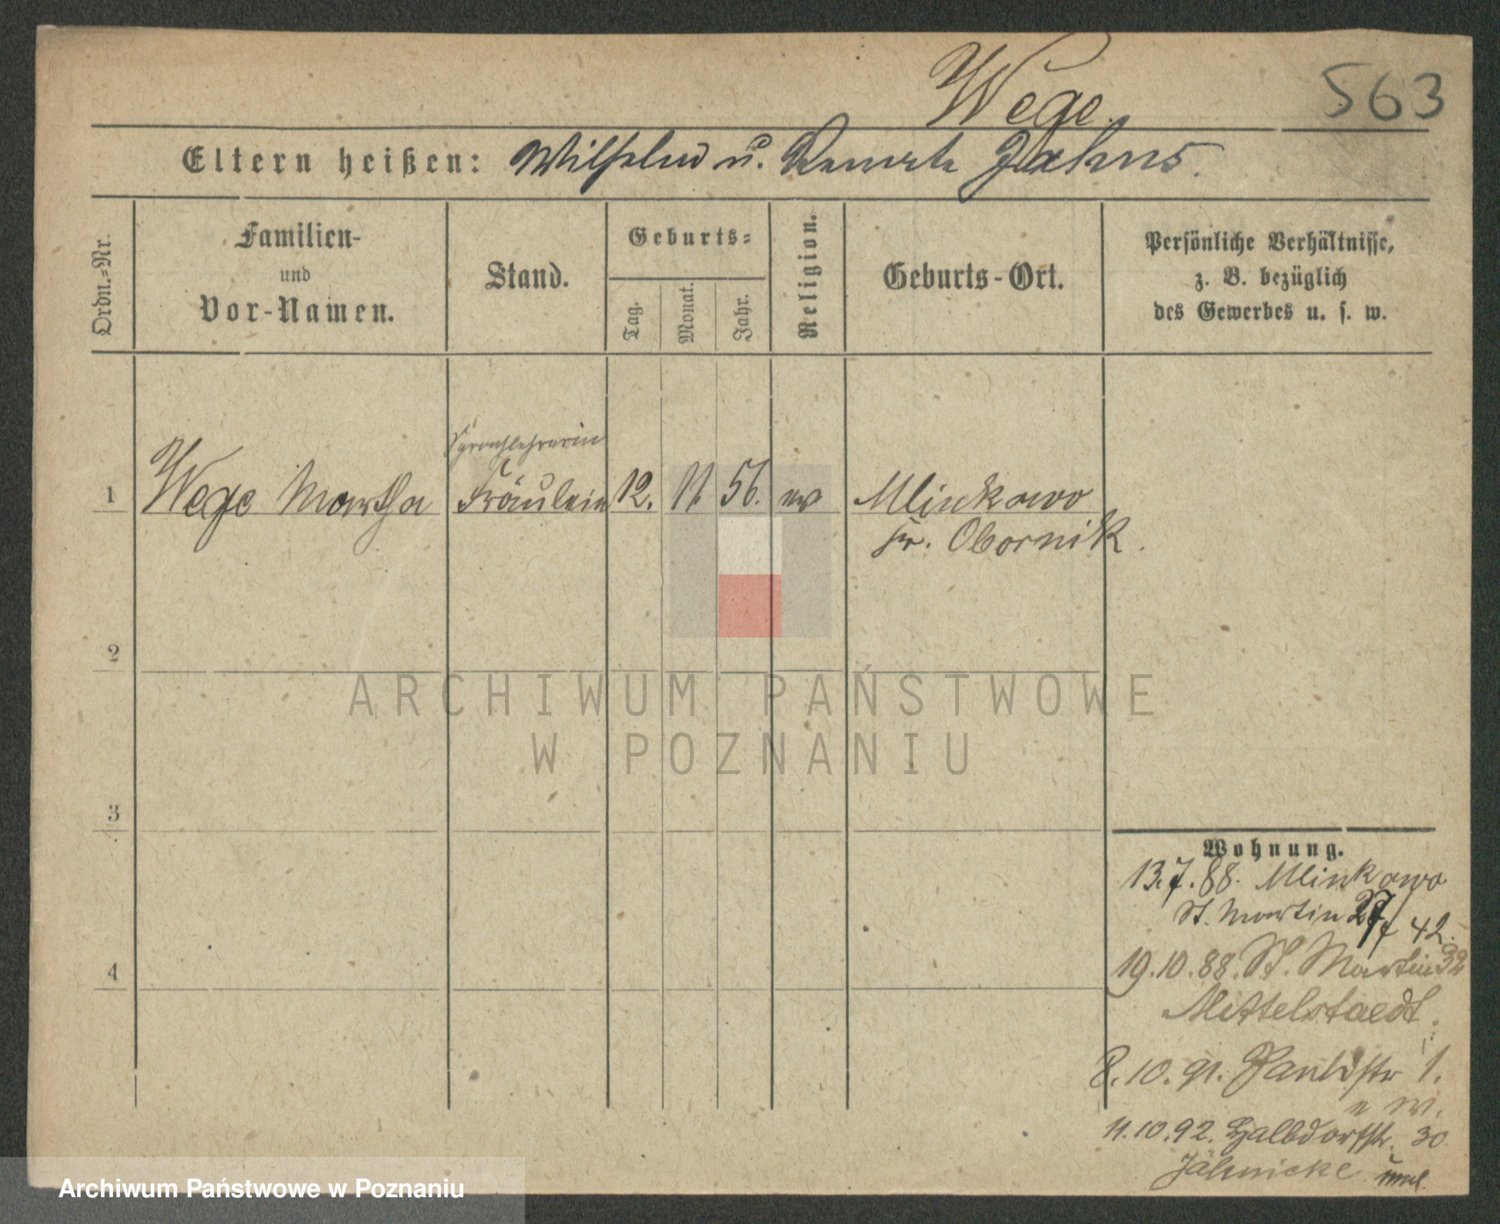 Wege
563
Eltern heißen: Wilhelm u. Renate Jahns.
Ordn.-Nr.
Familien-
und
Vor-Namen.
Stand.
Geburts-
Tag.
Monat.
Jahr.
Religion.
Geburts-Ort.
Persönliche Verhältnisse,
z. B. bezüglich
des Gewerbes u. s. w.
Sprachlehrerin
1 Wege Martha Fräulein 12. 11. 56. ev Mlinkowo
Kr. Obornik.
2
3
4
ARCHIWUM PAŃSTWOWE
W POZNANIU
Wohnung.
13.7.88. Mlinkowo
St. Martin 27/ 42.
19.10.88. St. Martin 32
Mittelstaedt.
8.10.91. Paulistr 1.
11.10.92. Halbdorfstr. 30
Jähnicke
Archiwum Państwowe w Poznaniu